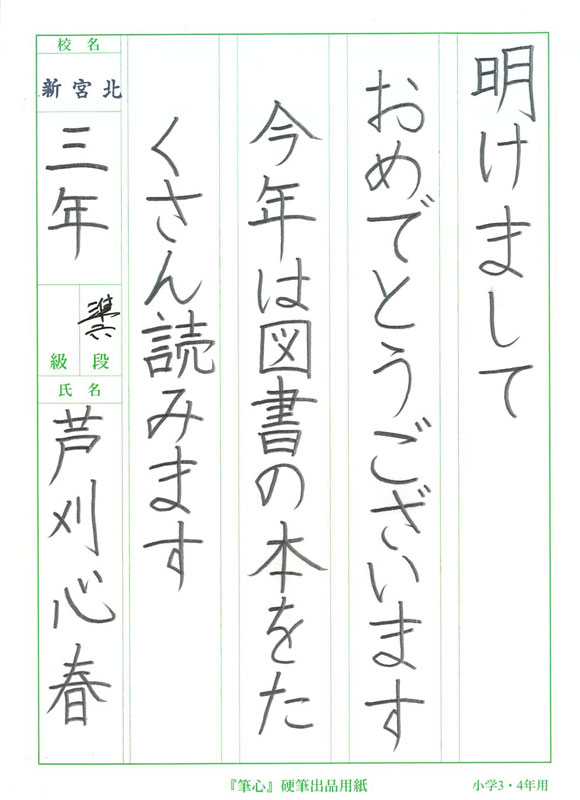 明けまして
おめでとうございます
今年は図書の本をた
くさん読みます
校名
新宮北
三年
準六
級 段
氏名
芦刈心春
『筆心』硬筆出品用紙
小学3・4年用